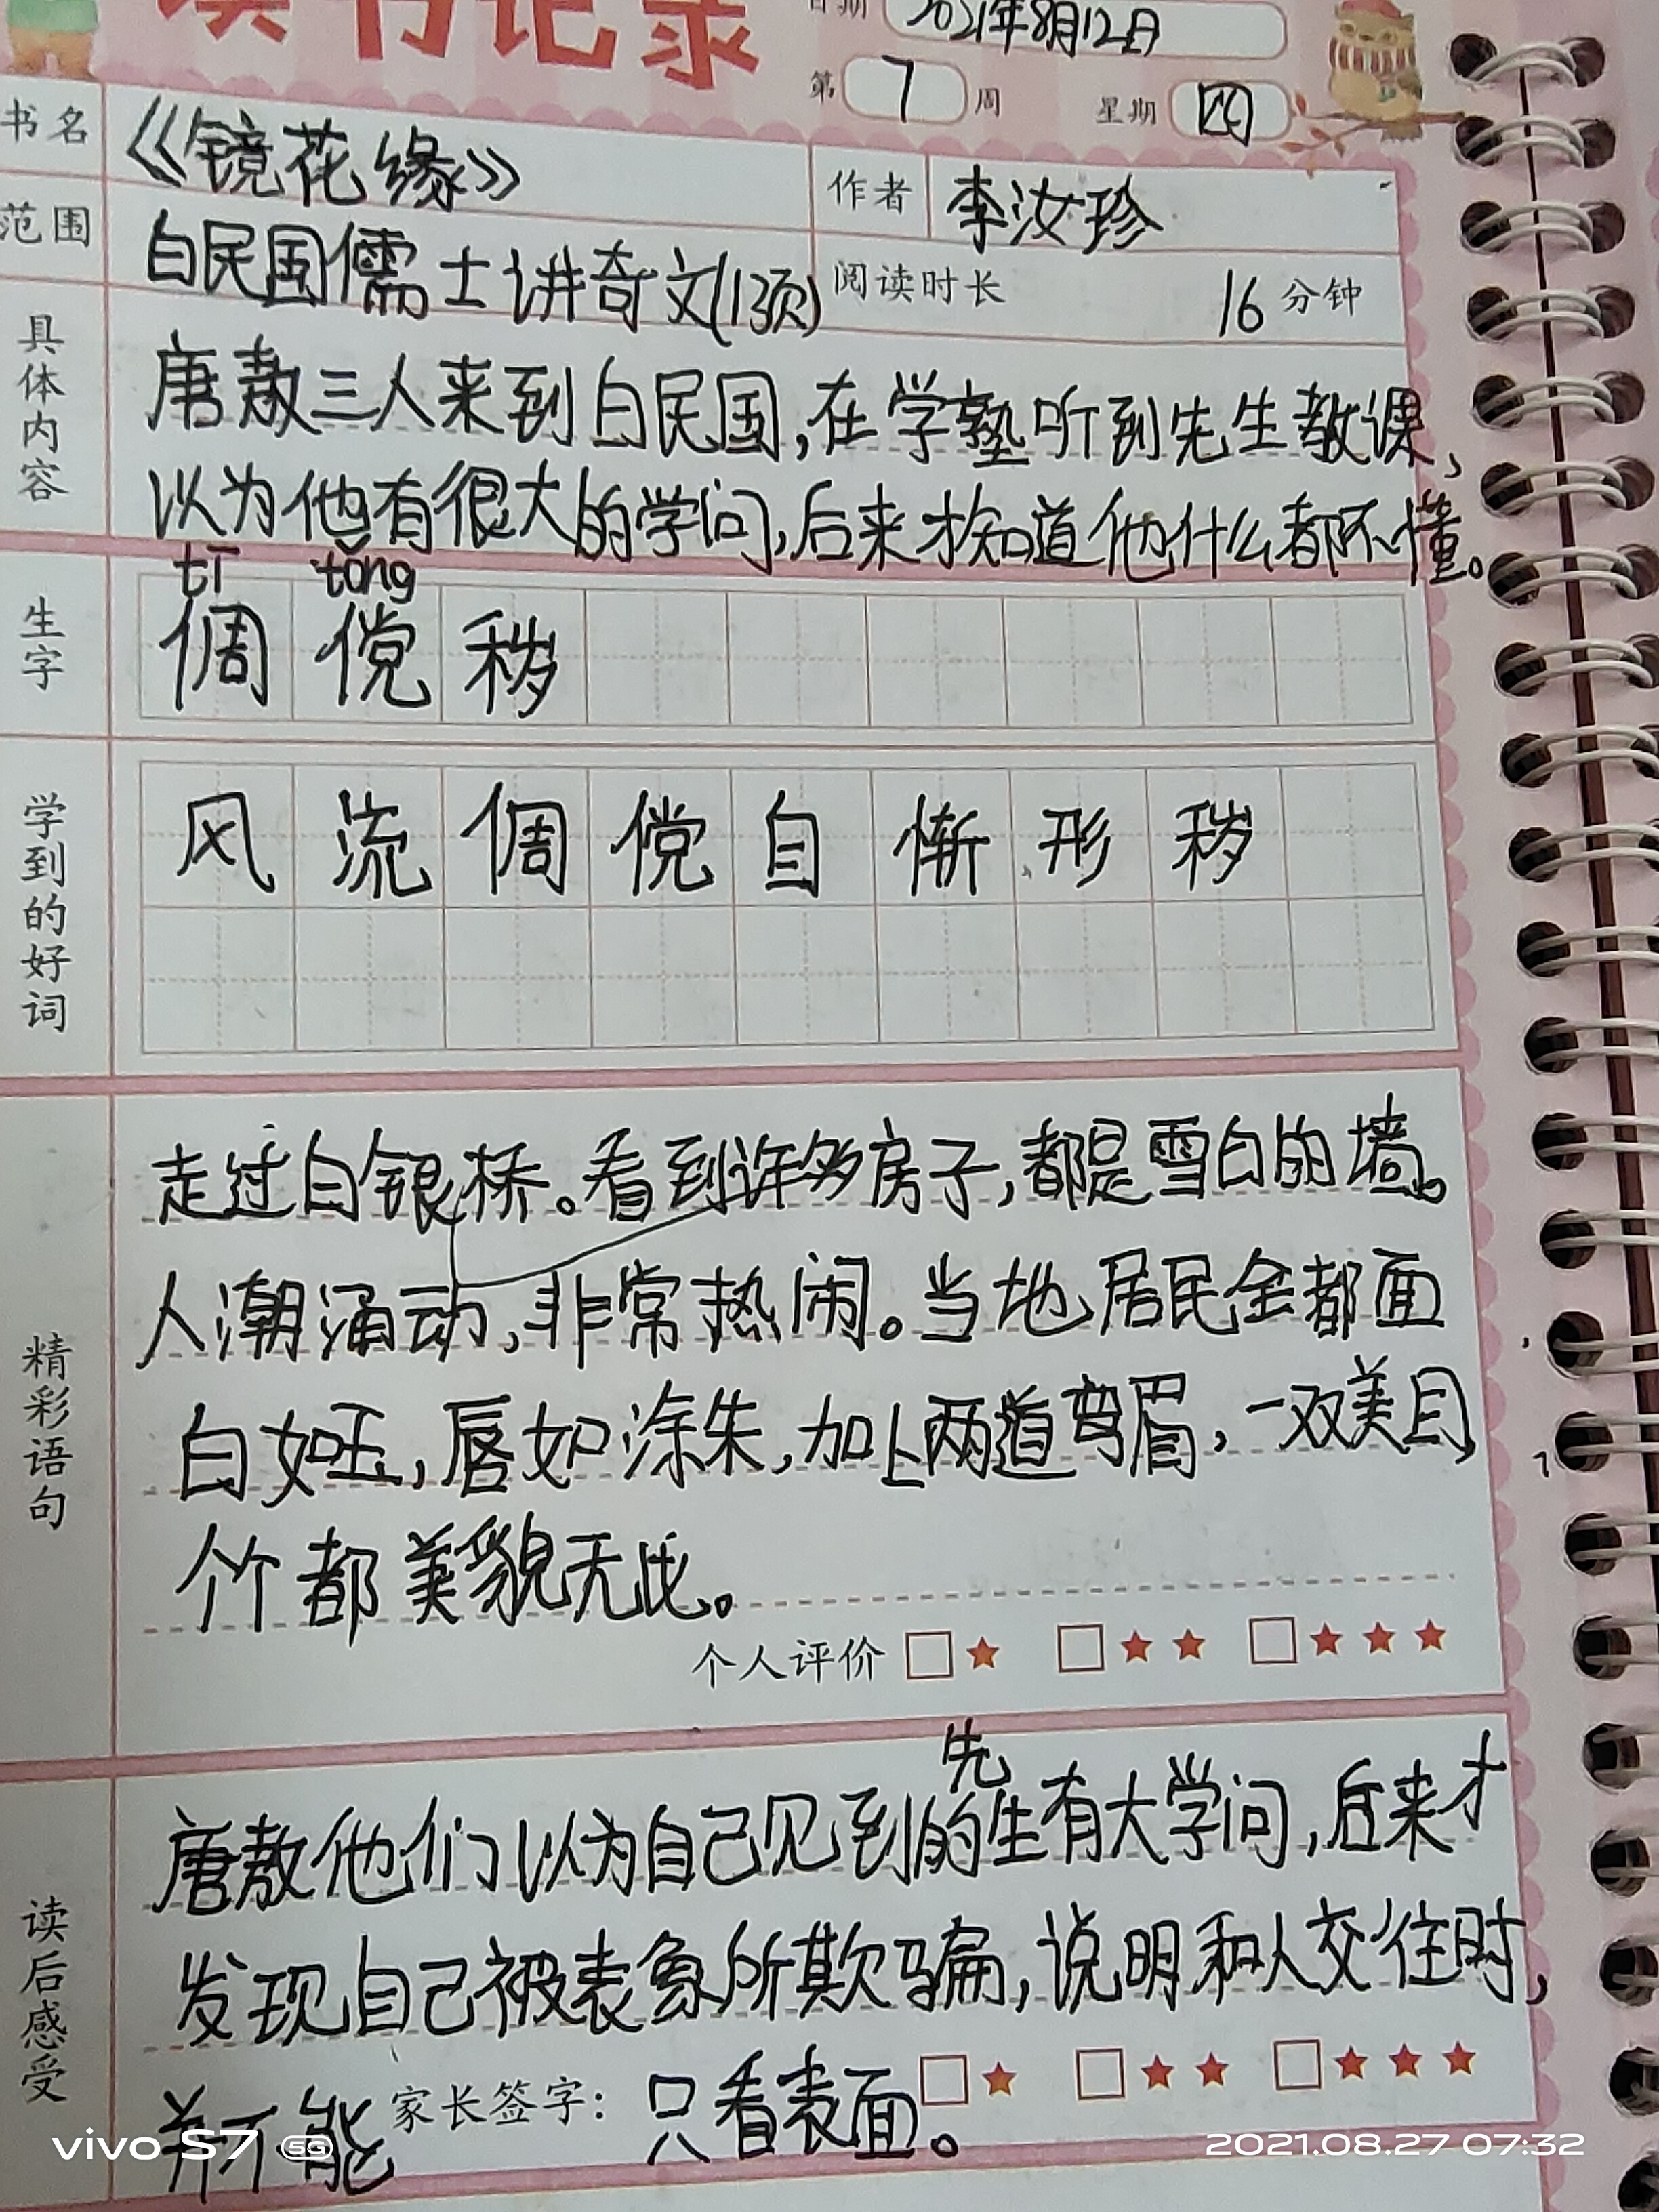 读书记录
日期 2021年8月12日
第 7 周 星期 四
书名 《镜花缘》 作者 李汝珍
范围 白民国儒士讲奇文(13页) 阅读时长 16分钟
具体内容
唐敖三人来到白民国,在学塾听到先生教课,
以为他有很大的学问,后来才知道他什么都不懂。
tī tǒng
生字 倜 傥 秽
学到的好词
风流倜傥自惭形秽
精彩语句
走过白银桥。看到许多房子,都是雪白的墙。
人潮涌动,非常热闹。当地居民全都面
白如玉,唇如涂朱,加上两道弯眉,一双美目,
个个都美貌无比。
个人评价 □★ □★★ □★★★
读后感受
唐敖他们以为自己见到的先生有大学问,后来才
发现自己被表象所欺骗,说明和人交往时,
并不能 家长签字: 只看表面。 □★ □★★ □★★★
vivo S7 5G 2021.08.27 07:32